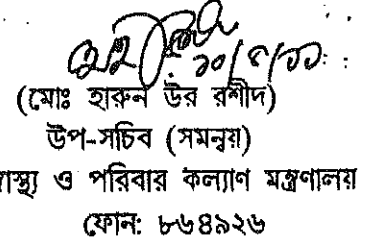 ১০/৫/১১
(মোঃ হারুন উর রশীদ)
উপ-সচিব (সমন্বয়)
স্বাস্থ্য ও পরিবার কল্যাণ মন্ত্রণালয়
ফোন: ৮৬৪৯২৬